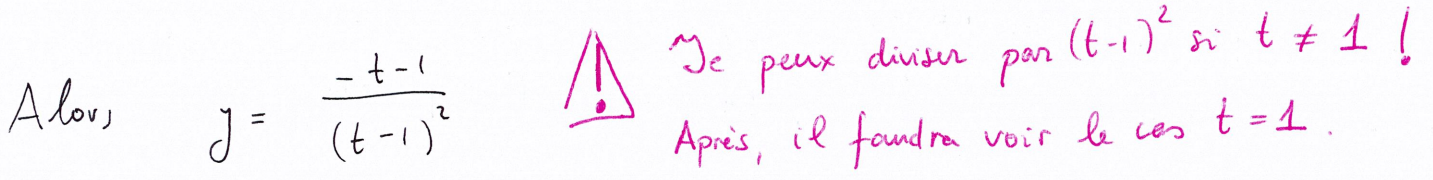 Alors y = (-t-1)/(t-1)²
Je peux diviser par (t-1)² si t ≠ 1 !
Après, il faudra voir le cas t = 1.